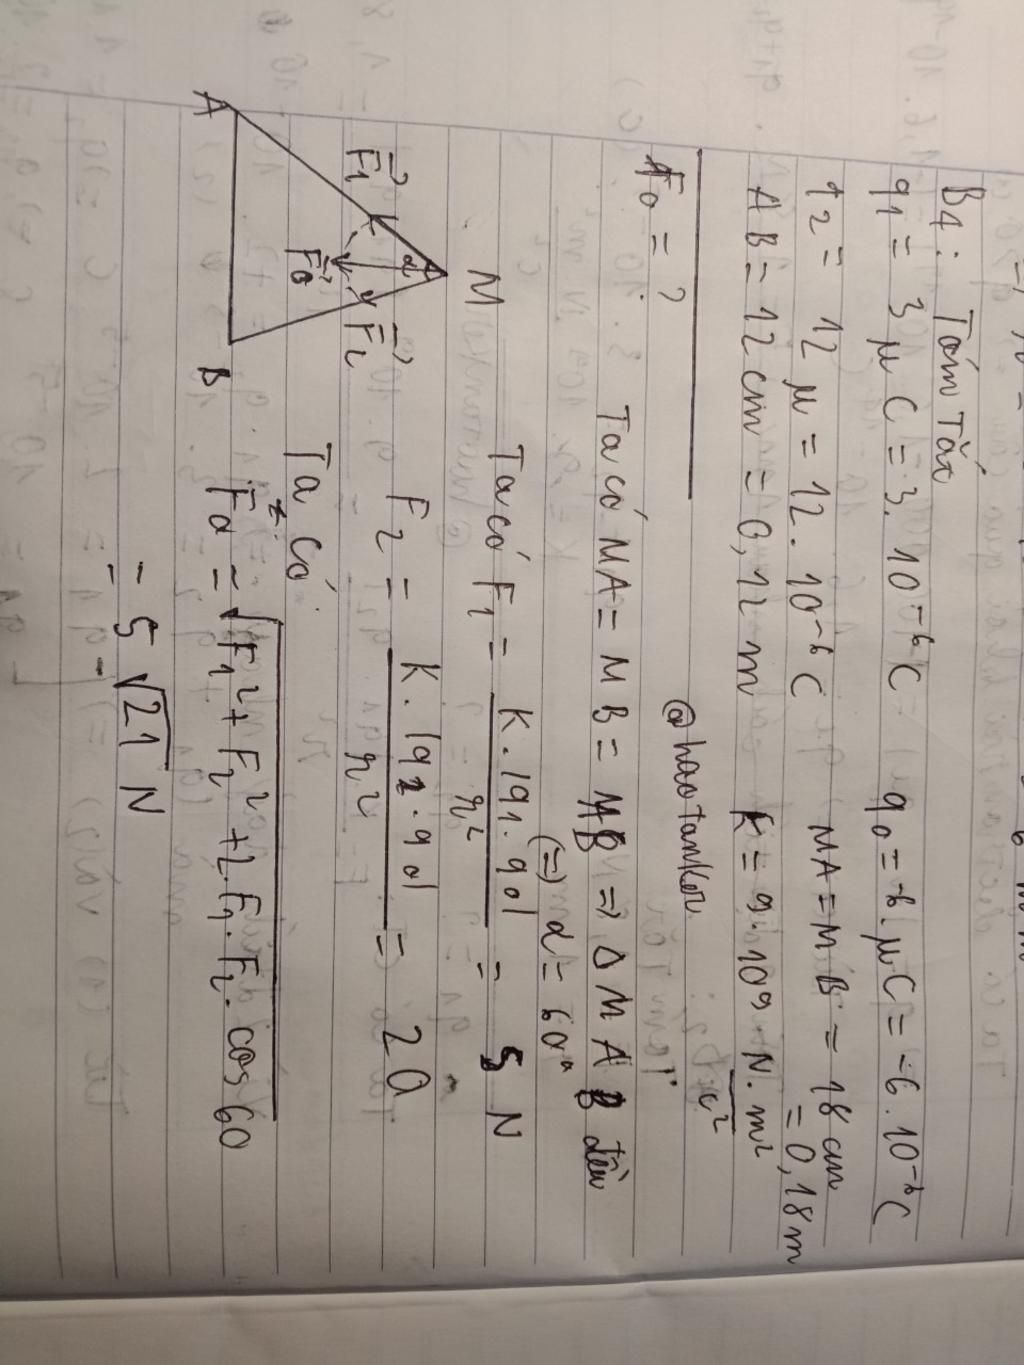 B4: Tóm Tắt
q1 = 3 μC = 3.10⁻⁶C q0 = -6.μC = -6.10⁻⁶C
q2 = 12 μ = 12.10⁻⁶C MA = MB = 18 cm
= 0,18 m
AB = 12 cm = 0,12 m K = 9.10⁹.N.m²
c²
@haotanker
F0 = ?
Ta có MA = MB = AB => Δ MAB đều
(=) α = 60°
Ta có F1 = K.|q1.q0| / r² = 5 N
F2 = K.|q2.q0| / r² = 20
Ta có
F0 = √F1² + F2² + 2.F1.F2.cos60
= 5√21 N
M
A
K
α
F1
F0
F2
B